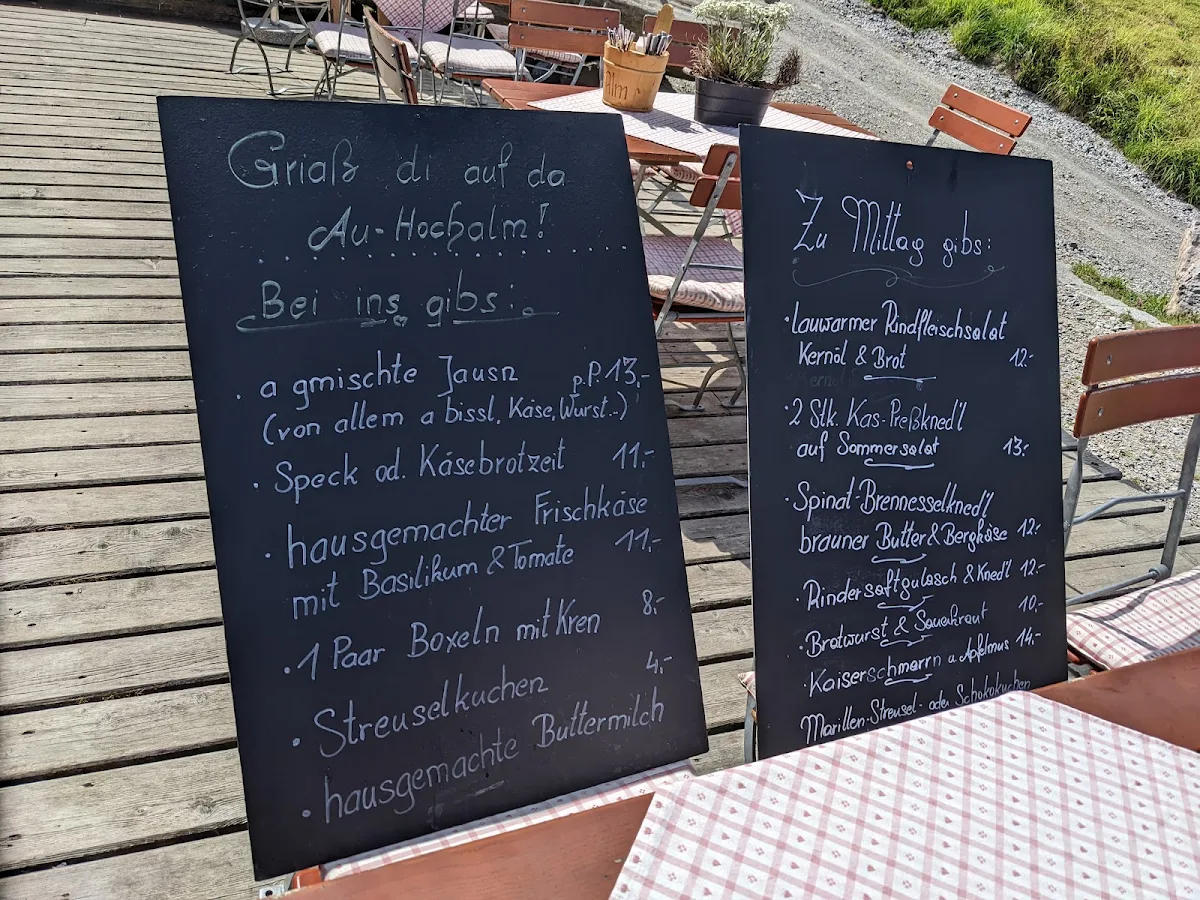 Griaß di auf da
Au-Hochalm!
Bei ins gibs:
· a gmischte Jausn p.P. 13,-
(von allem a bissl, Käse, Wurst..)
· Speck od. Käsebrotzeit 11,-
· hausgemachter Frischkäse
mit Basilikum & Tomate 11,-
· 1 Paar Boxeln mit Kren 8,-
· Streuselkuchen 4,-
· hausgemachte Buttermilch
Zu Mittag gibs:
· lauwarmer Rindfleischsalat
Kernöl & Brot 12.-
· 2 Stk. Kas-Preßkned'l
auf Sommersalat 13.-
· Spinat-Brennesselkned'l
brauner Butter & Bergkäse 12.-
· Rindersaftgulasch & Kned'l 12.-
· Bratwurst & Sauerkraut 10,-
· Kaiserschmarrn u. Apfelmus 14,-
Marillen-Streusel- oder Schokokuchen
Alm